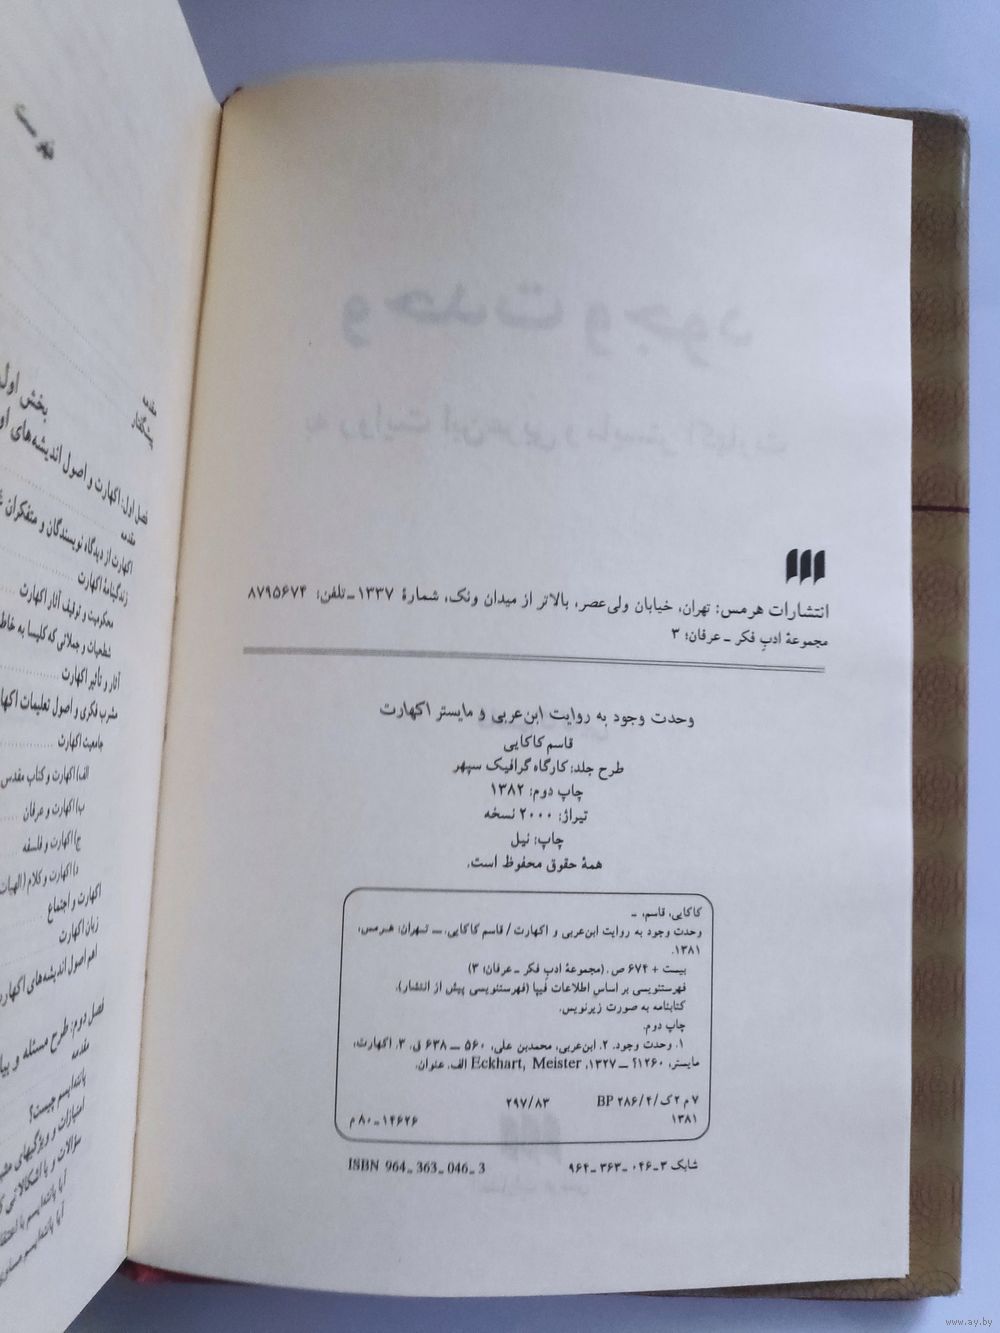 انتشارات هرمس: تهران، خیابان ولی‌عصر، بالاتر از میدان ونک، شمارهٔ ۱۳۳۷ ـ تلفن: ۸۷۹۵۶۷۴
مجموعهٔ ادب فکر ـ عرفان؛ ۳
وحدت وجود به روایت ابن‌عربی و مایستر اکهارت
قاسم کاکایی
طرح جلد: کارگاه گرافیک سپهر
چاپ دوم: ۱۳۸۲
تیراژ: ۲۰۰۰ نسخه
چاپ: نیل
همهٔ حقوق محفوظ است.
کاکایی، قاسم، ـ
وحدت وجود به روایت ابن‌عربی و اکهارت / قاسم کاکایی. ــ تهران: هرمس،
۱۳۸۱.
بیست + ۶۷۴ ص. (مجموعهٔ ادب فکر ـ عرفان؛ ۳)
فهرستنویسی بر اساس اطلاعات فیپا (فهرستنویسی پیش از انتشار).
کتابنامه به صورت زیرنویس.
چاپ دوم.
۱. وحدت وجود. ۲. ابن‌عربی، محمدبن علی، ۵۶۰ ــ ۶۳۸ ق. ۳. اکهارت،
مایستر، ۱۲۶۰؟ ــ ۱۳۲۷، Eckhart, Meister الف. عنوان.
۷ م ۲ ک / ۲ / ۲۸۶ BP ۲۹۷/۸۳
۱۳۸۱ ۱۴۶۲۶ ـ ۸۰ م
شابک ۳ ـ ۰۴۶ ـ ۳۶۳ ـ ۹۶۴ ISBN 964 - 363 - 046 - 3
مقدمه
پیشگفتار
بخش اول
فصل اول: اکهارت و اصول اندیشه‌های او
مقدمه
اکهارت از دیدگاه نویسندگان و متفکران
زندگینامهٔ اکهارت
محکومیت و توقیف آثار اکهارت
شطحیات و جملاتی که کلیسا به خاطر
آثار و تأثیر اکهارت
مشرب فکری و اصول تعلیمات اکها
جامعیت اکهارت
الف) اکهارت و کتاب مقدس
ب) اکهارت و عرفان
ج) اکهارت و فلسفه
د) اکهارت و کلام (الهیات
اکهارت و اجتماع
زبان اکهارت
اهم اصول اندیشه‌های اکهارت
فصل دوم: طرح مسئله و بیا
مقدمه
پانتهایسم چیست؟
امتیازات و ویژگیهای
سؤالات و یا اشکالاتی
آیا پانتهایسم با اعتقا
آیا پانتهایسم مساوی
www.ay.by